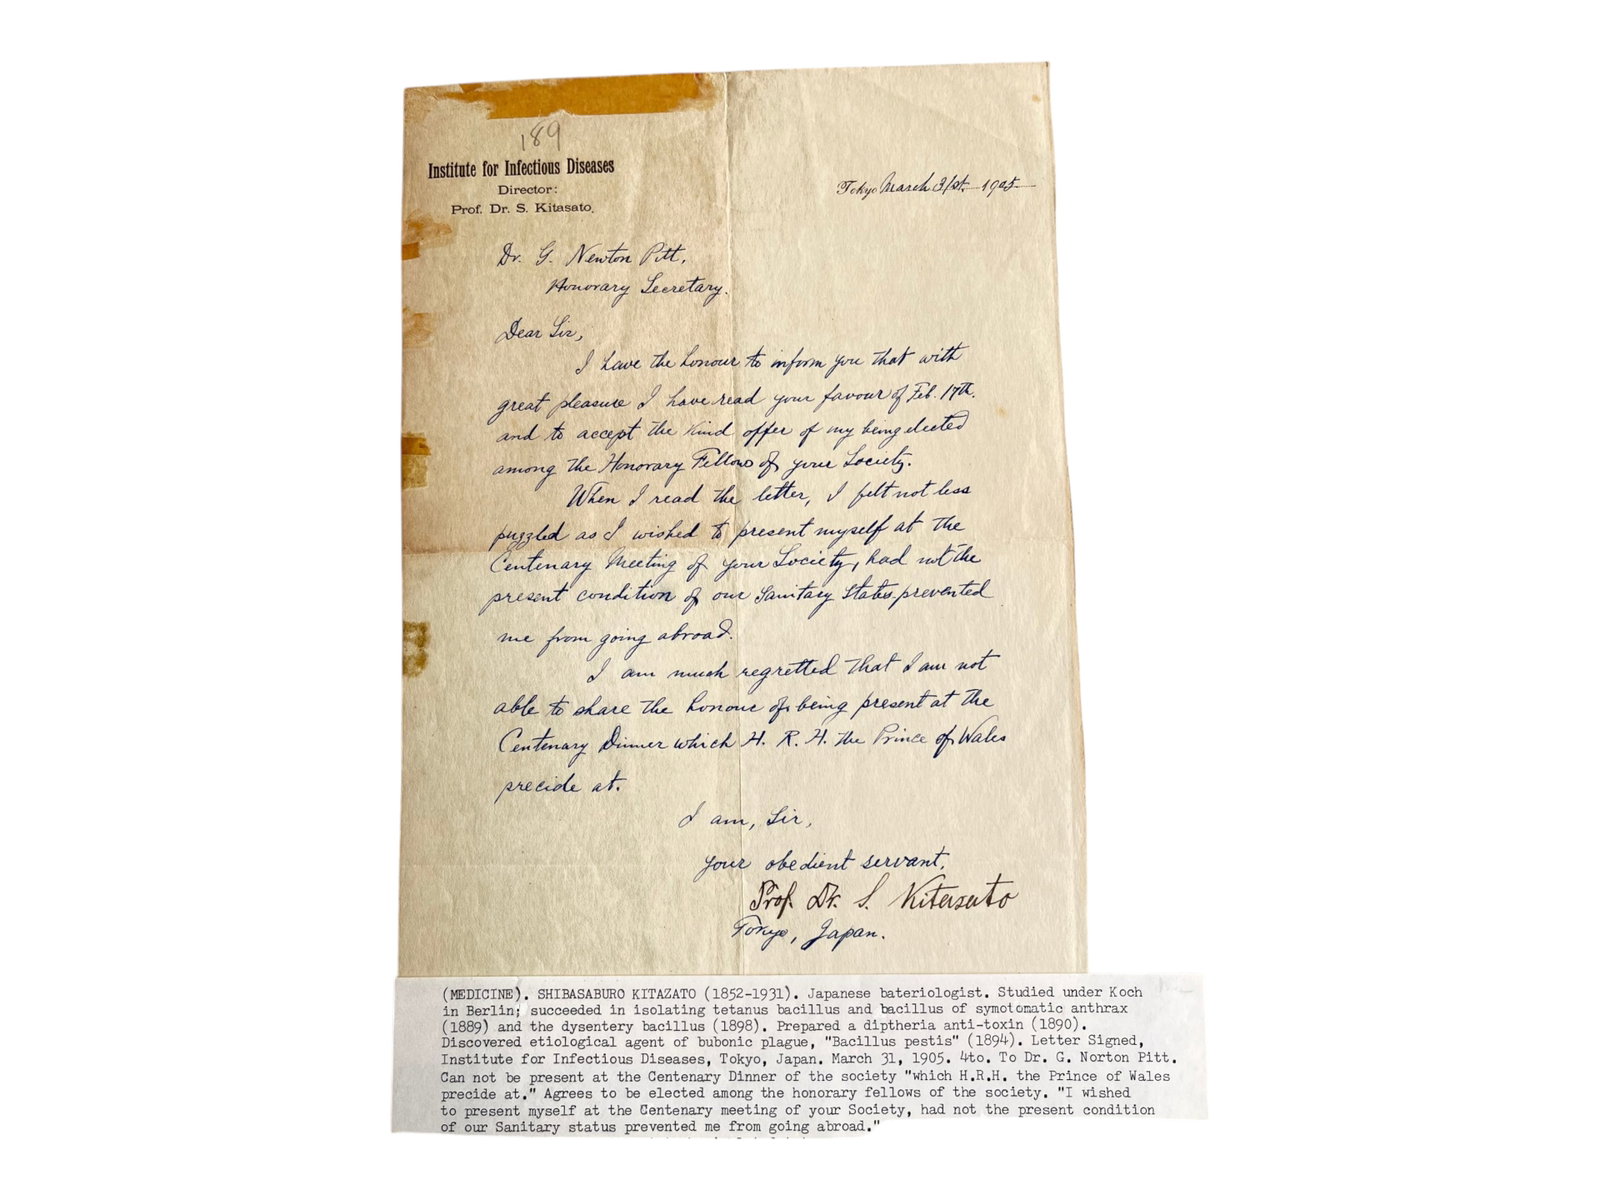 189
Institute for Infectious Diseases
Director:
Prof. Dr. S. Kitasato.
Tokyo March 31st. 1905
Dr. G. Newton Pitt,
Honorary Secretary.
Dear Sir,
I have the honour to inform you that with
great pleasure I have read your favour of Feb. 17th.
and to accept the kind offer of my being elected
among the Honorary Fellows of your Society.
When I read the letter, I felt not less
puzzled as I wished to present myself at the
Centenary Meeting of your Society, had not the
present condition of our Sanitary States prevented
me from going abroad.
I am much regretted that I am not
able to share the honour of being present at the
Centenary Dinner which H. R. H. the Prince of Wales
precide at.
I am, Sir,
your obedient servant,
Prof. Dr. S. Kitasato
Tokyo, Japan.
(MEDICINE). SHIBASABURO KITAZATO (1852-1931). Japanese bateriologist. Studied under Koch
in Berlin; succeeded in isolating tetanus bacillus and bacillus of symotomatic anthrax
(1889) and the dysentery bacillus (1898). Prepared a diptheria anti-toxin (1890).
Discovered etiological agent of bubonic plague, "Bacillus pestis" (1894). Letter Signed,
Institute for Infectious Diseases, Tokyo, Japan. March 31, 1905. 4to. To Dr. G. Norton Pitt.
Can not be present at the Centenary Dinner of the society "which H.R.H. the Prince of Wales
precide at." Agrees to be elected among the honorary fellows of the society. "I wished
to present myself at the Centenary meeting of your Society, had not the present condition
of our Sanitary status prevented me from going abroad."